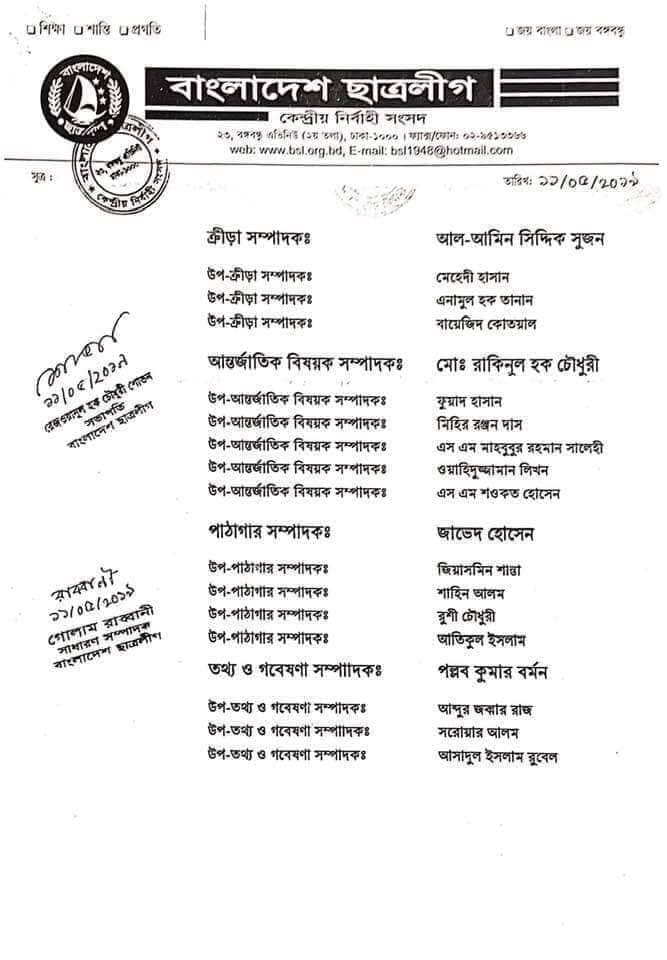 ❑ শিক্ষা ❑ শান্তি ❑ প্রগতি
❑ জয় বাংলা ❑ জয় বঙ্গবন্ধু
বাংলাদেশ
ছাত্রলীগ
বাংলাদেশ ছাত্রলীগ
কেন্দ্রীয় নির্বাহী সংসদ
২৩, বঙ্গবন্ধু এভিনিউ (২য় তলা), ঢাকা-১০০০ । ফ্যাক্স/ফোনঃ ০২-৯৫১৩৩৬৬
web: www.bsl.org.bd, E-mail: bsl1948@hotmail.com
কেন্দ্রীয় নির্বাহী সংসদ
সুত্র :
তারিখঃ ১১/০৫/২০১৯
ক্রীড়া সম্পাদকঃ আল-আমিন সিদ্দিক সুজন
উপ-ক্রীড়া সম্পাদকঃ মেহেদী হাসান
উপ-ক্রীড়া সম্পাদকঃ এনামুল হক তানান
উপ-ক্রীড়া সম্পাদকঃ বায়েজিদ কোতয়াল
আন্তর্জাতিক বিষয়ক সম্পাদকঃ মোঃ রাকিনুল হক চৌধুরী
উপ-আন্তর্জাতিক বিষয়ক সম্পাদকঃ ফুয়াদ হাসান
উপ-আন্তর্জাতিক বিষয়ক সম্পাদকঃ মিহির রঞ্জন দাস
উপ-আন্তর্জাতিক বিষয়ক সম্পাদকঃ এস এম মাহবুবুর রহমান সালেহী
উপ-আন্তর্জাতিক বিষয়ক সম্পাদকঃ ওয়াহিদুজ্জামান লিখন
উপ-আন্তর্জাতিক বিষয়ক সম্পাদকঃ এস এম শওকত হোসেন
১১/০৫/২০১৯
রেজওয়ানুল হক চৌধুরী শোভন
সভাপতি
বাংলাদেশ ছাত্রলীগ
পাঠাগার সম্পাদকঃ জাভেদ হোসেন
উপ-পাঠাগার সম্পাদকঃ জিয়াসমিন শান্তা
উপ-পাঠাগার সম্পাদকঃ শাহিন আলম
উপ-পাঠাগার সম্পাদকঃ রুশী চৌধুরী
উপ-পাঠাগার সম্পাদকঃ আতিকুল ইসলাম
রাব্বানী
১১/০৫/২০১৯
গোলাম রাব্বানী
সাধারণ সম্পাদক
বাংলাদেশ ছাত্রলীগ
তথ্য ও গবেষণা সম্পাাদকঃ পল্লব কুমার বর্মন
উপ-তথ্য ও গবেষণা সম্পাদকঃ আব্দুর জব্বার রাজ
উপ-তথ্য ও গবেষণা সম্পাদকঃ সরোয়ার আলম
উপ-তথ্য ও গবেষণা সম্পাদকঃ আসাদুল ইসলাম রুবেল